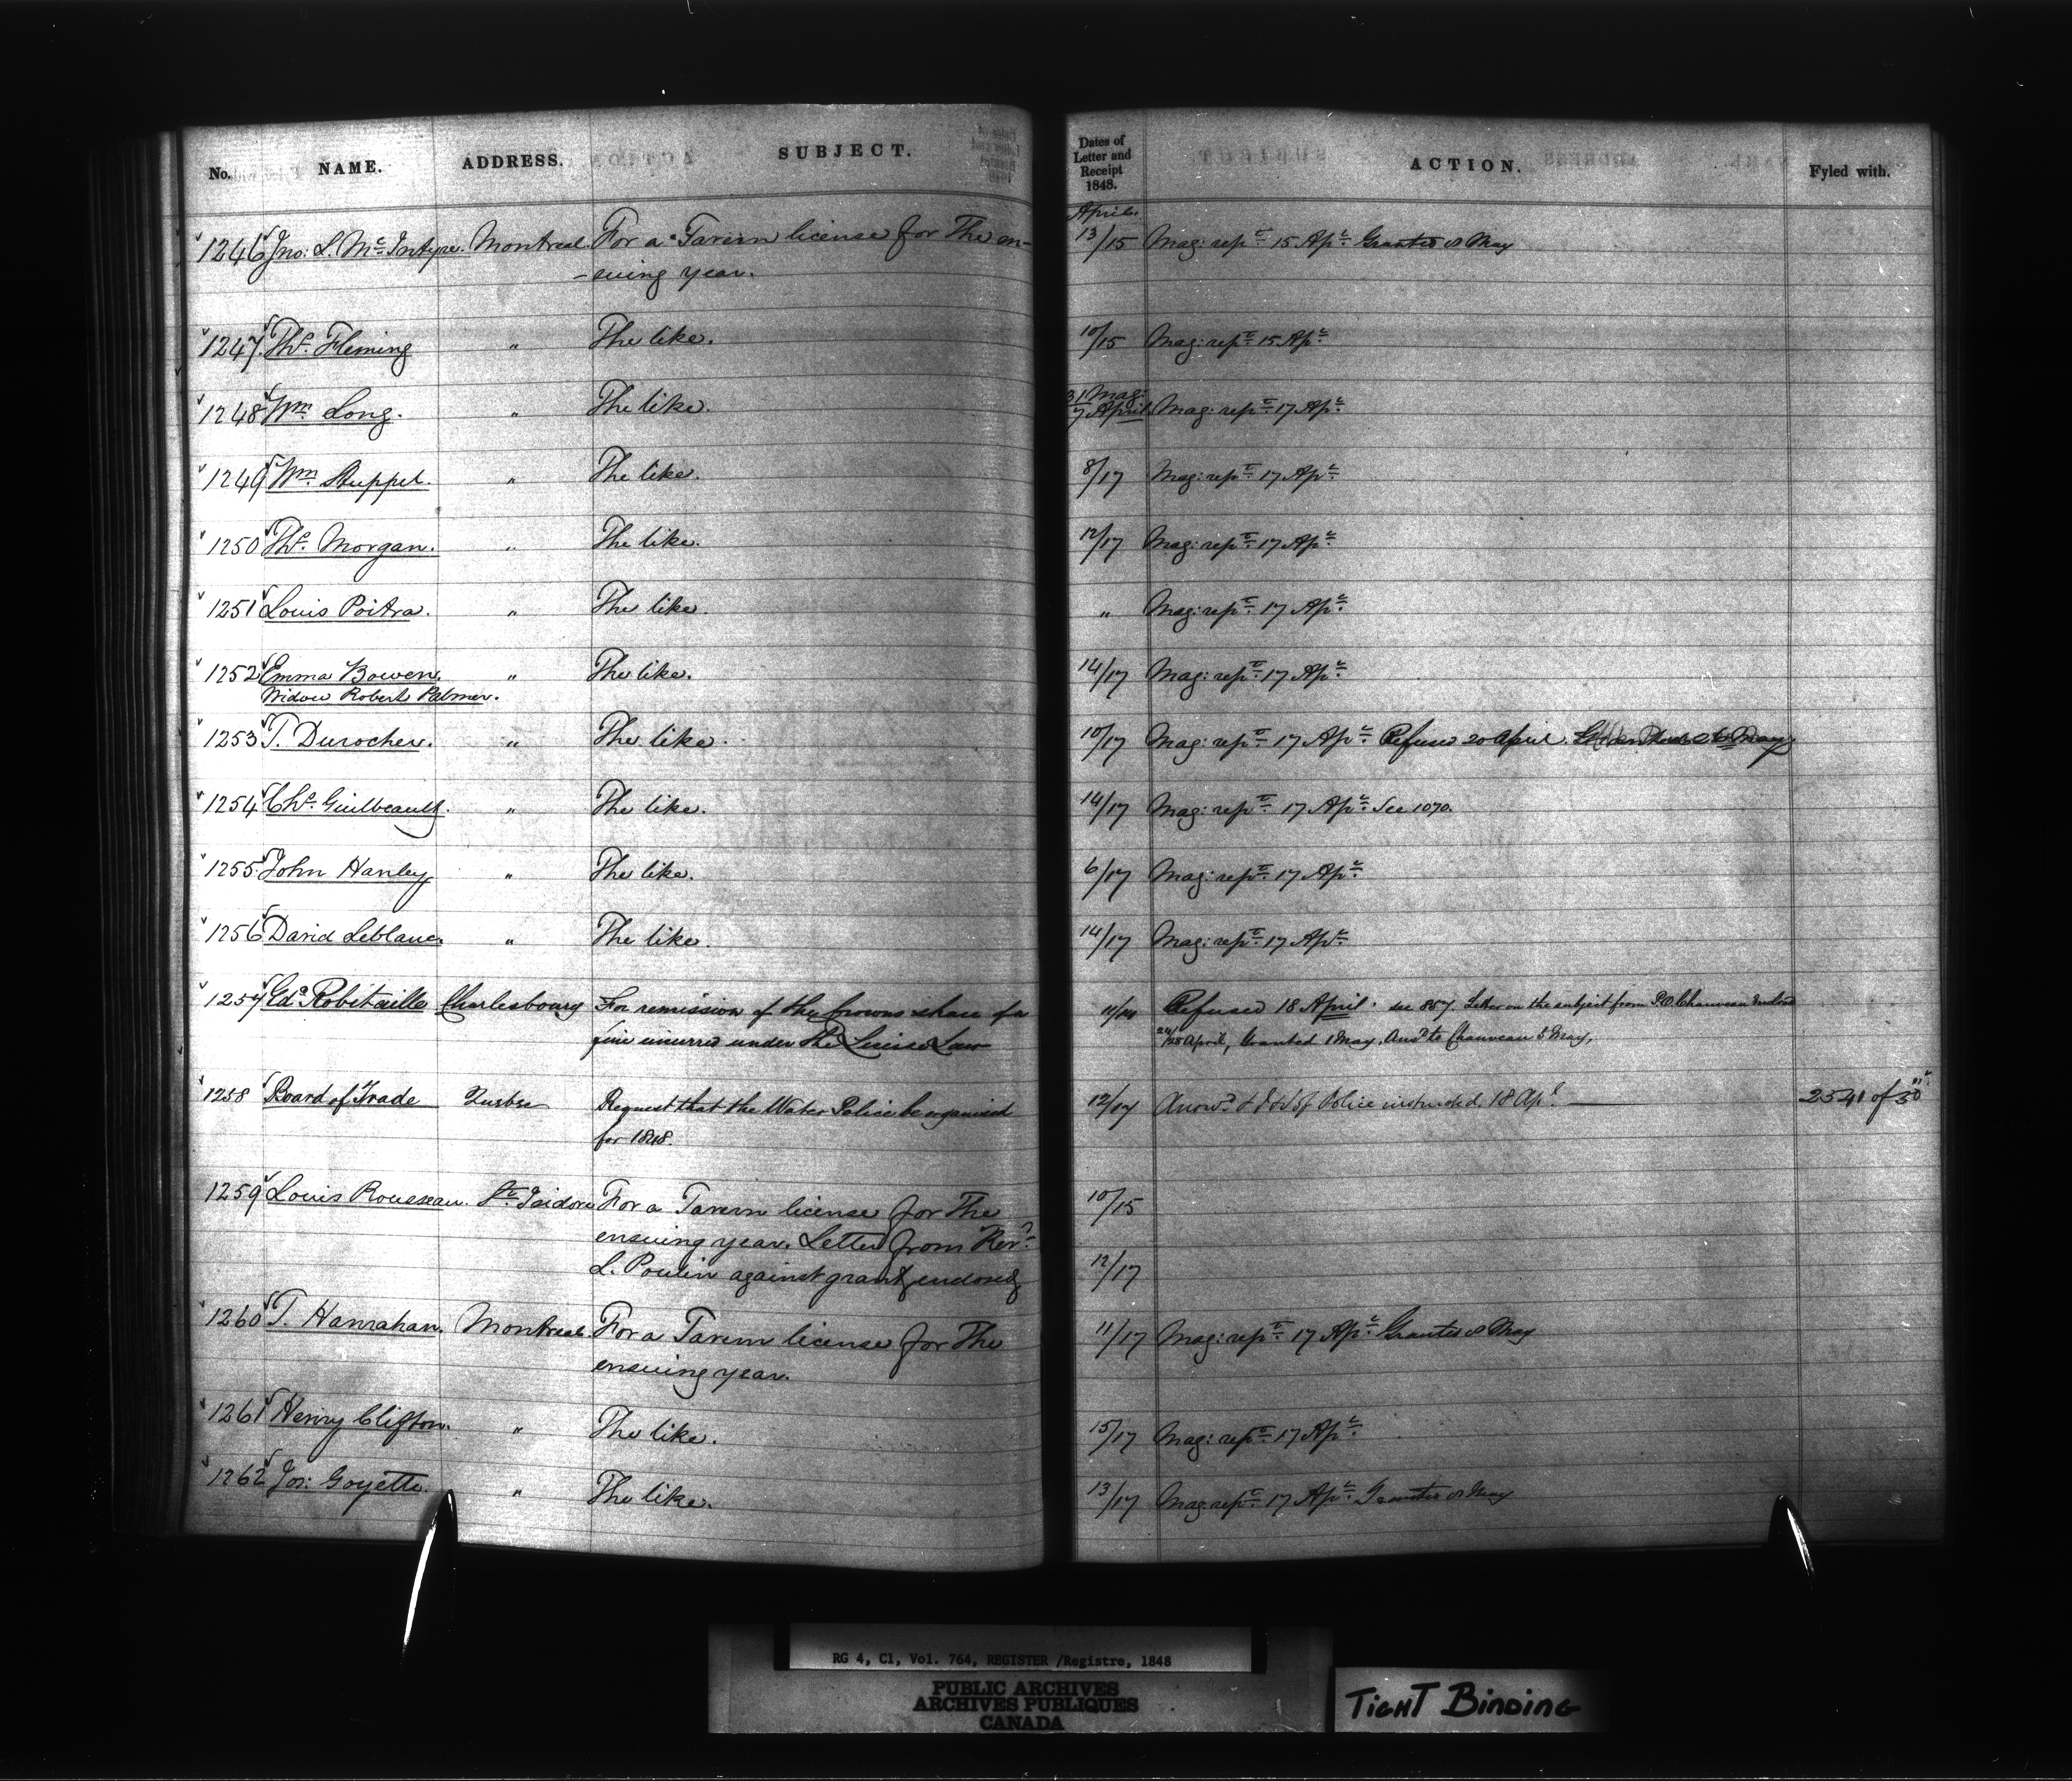 No. NAME. ADDRESS. SUBJECT. Dates of Letter and Receipt 1848. ACTION. Fyled with.
April.
1246 Jno: L. McIntyre. Montreal. For a Tavern license for The en- 13/15 Mag: rept. 15 Apl. Granted 8 May
-suing year.
1247 Ths. Fleming " The like. 10/15 Mag: rept. 15 Apl.
1248 Wm. Long. " The like. 31 Mar: 17 April Mag: rept. 17 Apl.
1249 Wm. Ruppel. " The like. 8/17 Mag: rept. 17 Apl.
1250 Ths. Morgan. " The like. 12/17 Mag: rept. 17 Apl.
1251 Louis Poitra. " The like. " Mag: rept. 17 Apl.
1252 Emma Bowen. " The like. 14/17 Mag: rept. 17 Apl.
Widow Robert Palmer.
1253 T. Durocher. " The like. 10/17 Mag: rept. 17 Apl. Refused 20 April. May
1254 Chs. Guilbeault. " The like. 14/17 Mag: rept. 17 Apl. See 1070.
1255 John Hanley " The like. 6/17 Mag: rept. 17 Apl.
1256 David Leblanc. " The like. 14/17 Mag: rept. 17 Apl.
1257 Edd. Robitaille Charlesbourg For remission of the Crowns share of a 11/14 Refused 18 April. see 857. Letter on the subject from P.O. Chauveau
fine incurred under the License Law 24/28 April, Granted 1 May. Ansd. to Chauveau 5 May,
1258 Board of Trade Quebec Request that the Water Police be organised 12/17 Answd. & of Police instructed. 18 Apl. 2541 of 50
for 1848.
1259 Louis Rousseau. St. Isidore For a Tavern license for The 10/15
ensuing year. Letter from Revd.
L. Poulin against grant, enclosed 12/17
1260 T. Hanrahan. Montreal. For a Tavern license for The 11/17 Mag: rept. 17 Apl. Granted 8 May
ensuing year.
1261 Henry Clifton. " The like. 15/17 Mag: rept. 17 Apl.
1262 Jos: Goyette. " The like. 13/17 Mag: rept. 17 Apl. Granted 8 May
RG 4, C1, Vol. 764, REGISTER /Registre, 1848
PUBLIC ARCHIVES
ARCHIVES PUBLIQUES
CANADA
TIGHT BINDING